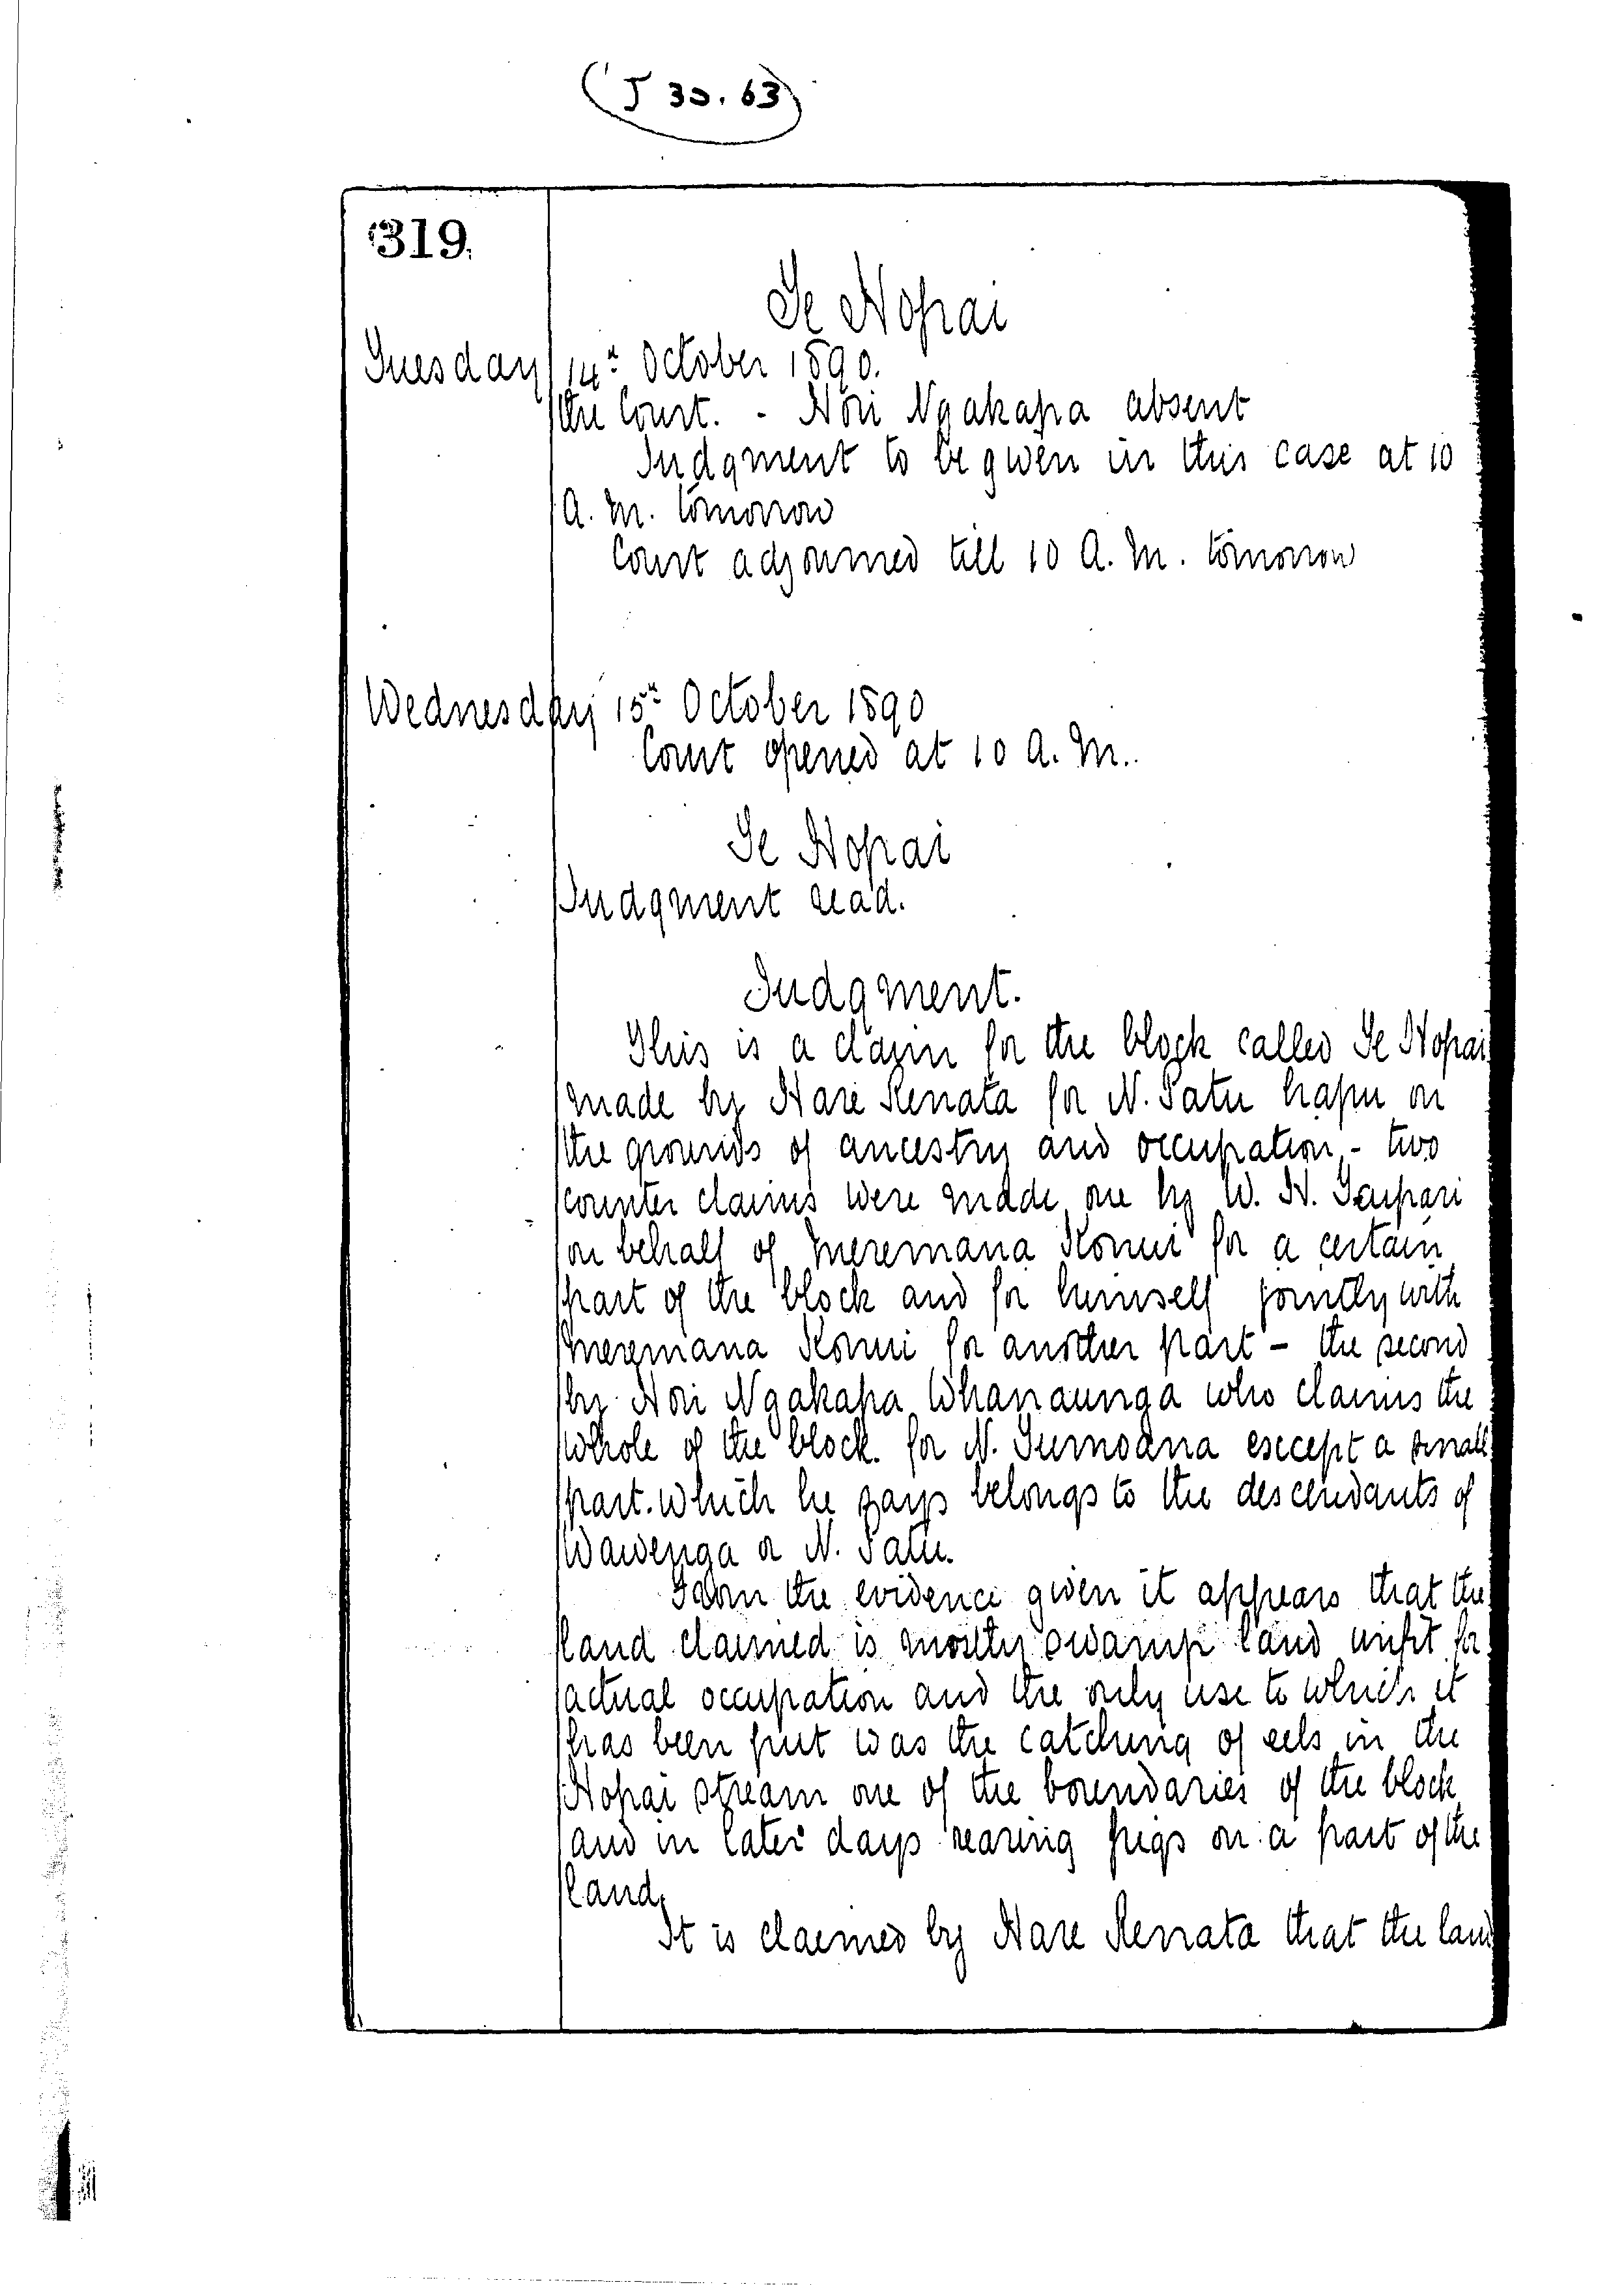 (J 30.63)
319.
Te Hopai
Tuesday 14th October 1890.
the Court. - Hori Ngakapa absent
Judgment to be given in this case at 10
A.M. tomorrow
Court adjourned till 10 A.M. tomorrow
Wednesday 15th October 1890
Court opened at 10 A.M..
Te Hopai
Judgment read.
Judgment.
This is a claim for the block called Te Hopai
made by Hare Renata for N. Patu hapu on
the grounds of ancestry and occupation - two
counter claims were made one by W. H. Taipari
on behalf of Meremana Konui for a certain
part of the block and for himself jointly with
Meremana Konui for another part - the second
by Hori Ngakapa Whanaunga who claims the
whole of the block for N. Tumoana except a small
part which he says belongs to the descendants of
Wawenga or N. Patu.
From the evidence given it appears that the
land claimed is mostly swamp land unfit for
actual occupation and the only use to which it
has been put was the catching of eels in the
Hopai stream one of the boundaries of the block
and in later days rearing pigs on a part of the
land.
It is claimed by Hare Renata that the land